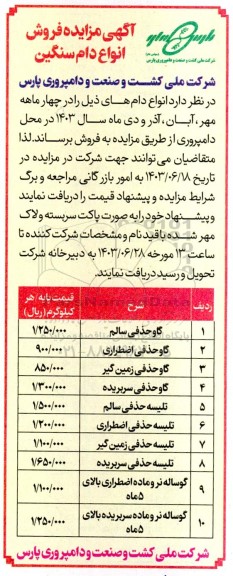 آگهی مزایده فروش
انواع دام سنگین
شرکت ملی کشت و صنعت و دامپروری پارس
در نظر دارد انواع دام های ذیل را در چهار ماهه
مهر، آبان، آذر و دی ماه سال ۱۴۰۳ در محل
دامپروری از طریق مزایده به فروش برساند. لذا
متقاضیان می توانند جهت شرکت در مزایده در
تاریخ ۱۴۰۳/۰۶/۱۸ به امور بازرگانی مراجعه و برگ
شرایط مزایده و پیشنهاد قیمت را دریافت نمایند
و پیشنهاد خود را به صورت پاکت سربسته و لاک و
مهر شده با قید نام و مشخصات شرکت کننده تا
ساعت ۱۳ مورخه ۱۴۰۳/۰۶/۲۸ به دبیرخانه شرکت
تحویل و رسید دریافت نمایند.
ردیف شرح قیمت پایه هر کیلوگرم (ریال)
۱ گاو حذفی سالم ۱/۲۵۰/۰۰۰
۲ گاو حذفی اضطراری ۹۰۰/۰۰۰
۳ گاو حذفی زمین گیر ۸۵۰/۰۰۰
۴ گاو حذفی سربریده ۱/۳۰۰/۰۰۰
۵ تلیسه حذفی سالم ۱/۵۰۰/۰۰۰
۶ تلیسه حذفی اضطراری ۱/۲۰۰/۰۰۰
۷ تلیسه حذفی زمین گیر ۱/۱۰۰/۰۰۰
۸ تلیسه حذفی سربریده ۱/۶۵۰/۰۰۰
۹ گوساله نر و ماده اضطراری بالای ۵ ماه ۱/۱۰۰/۰۰۰
۱۰ گوساله نر و ماده سربریده بالای ۵ ماه ۱/۲۵۰/۰۰۰
شرکت ملی کشت و صنعت و دامپروری پارس